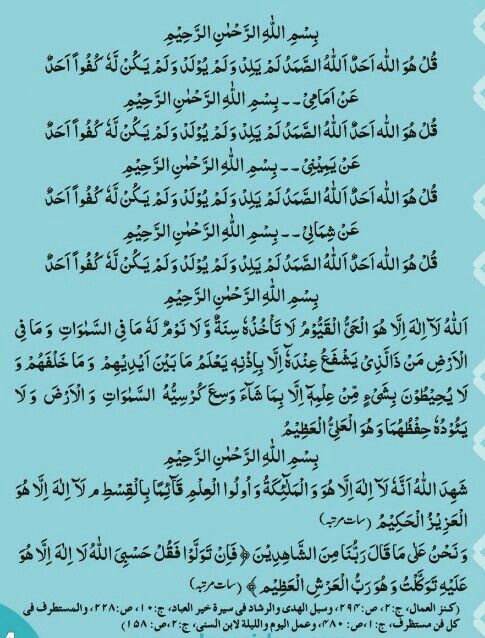 بِسْمِ اللّٰهِ الرَّحْمٰنِ الرَّحِيْمِ
قُلْ هُوَ اللّٰه اَحَدٌ اَللّٰهُ الصَّمَدُ لَمْ يَلِدْ وَلَمْ يُوْلَدْ وَلَمْ يَكُنْ لَّهٗ كُفُواً اَحَدٌ
عَنْ اَمَامِیْ ۔۔ بِسْمِ اللّٰهِ الرَّحْمٰنِ الرَّحِيْمِ
قُلْ هُوَ اللّٰه اَحَدٌ اَللّٰهُ الصَّمَدُ لَمْ يَلِدْ وَلَمْ يُوْلَدْ وَلَمْ يَكُنْ لَّهٗ كُفُواً اَحَدٌ
عَنْ يَمِيْنِیْ ۔۔ بِسْمِ اللّٰهِ الرَّحْمٰنِ الرَّحِيْمِ
قُلْ هُوَ اللّٰه اَحَدٌ اَللّٰهُ الصَّمَدُ لَمْ يَلِدْ وَلَمْ يُوْلَدْ وَلَمْ يَكُنْ لَّهٗ كُفُواً اَحَدٌ
عَنْ شِمَالِیْ ۔۔ بِسْمِ اللّٰهِ الرَّحْمٰنِ الرَّحِيْمِ
قُلْ هُوَ اللّٰه اَحَدٌ اَللّٰهُ الصَّمَدُ لَمْ يَلِدْ وَلَمْ يُوْلَدْ وَلَمْ يَكُنْ لَّهٗ كُفُواً اَحَدٌ
بِسْمِ اللّٰهِ الرَّحْمٰنِ الرَّحِيْمِ
اَللّٰهُ لَآ اِلٰهَ اِلَّا هُوَ الْحَیُّ الْقَيُّوْمُ لَا تَاْخُذُهٗ سِنَةٌ وَّ لَا نَوْمٌ لَهٗ مَا فِی السَّمٰوَاتِ وَ مَا فِی
الْاَرْضِ مَنْ ذَالَّذِیْ يَشْفَعُ عِنْدَهٗٓ اِلَّا بِاِذْنِهٖ يَعْلَمُ مَا بَيْنَ اَيْدِيْهِمْ وَ مَا خَلْفَهُمْ وَ
لَا يُحِيْطُوْنَ بِشَیْءٍ مِّنْ عِلْمِهٖٓ اِلَّا بِمَا شَآءَ وَسِعَ كُرْسِيُّهُ السَّمٰوَاتِ وَ الْاَرْضَ وَ لَا
يَئُوْدُهٗ حِفْظُهُمَا وَ هُوَ الْعَلِیُّ الْعَظِيْمُ
بِسْمِ اللّٰهِ الرَّحْمٰنِ الرَّحِيْمِ
شَهِدَ اللّٰهُ اَنَّهٗ لَآ اِلٰهَ اِلَّا هُوَ وَ الْمَلٰٓئِكَةُ وَ اُولُوا الْعِلْمِ قَآئِمًا بِالْقِسْطِ م لَا اِلٰهَ اِلَّا هُوَ
الْعَزِيْزُ الْحَكِيْمُ (سات مرتبہ)
وَ نَحْنُ عَلٰی مَا قَالَ رَبُّنَا مِنَ الشَّاهِدِيْنَ ﴿ فَاِنْ تَوَلَّوْا فَقُلْ حَسْبِیَ اللّٰهُ لَا اِلٰهَ اِلَّا هُوَ
عَلَيْهِ تَوَكَّلْتُ وَ هُوَ رَبُّ الْعَرْشِ الْعَظِيْمِ ﴾ (سات مرتبہ)
(کنز العمال، ج:۲، ص:۲۹۴، وسبل الهدی والرشاد فی سیرة خیر العباد، ج:۱۰، ص:۲۲۸، والمستطرف فی
کل فن مستظرف، ج:۱، ص:۴۸۰، وعمل الیوم واللیلة لابن السنی، ج:۲، ص:۱۵۸)